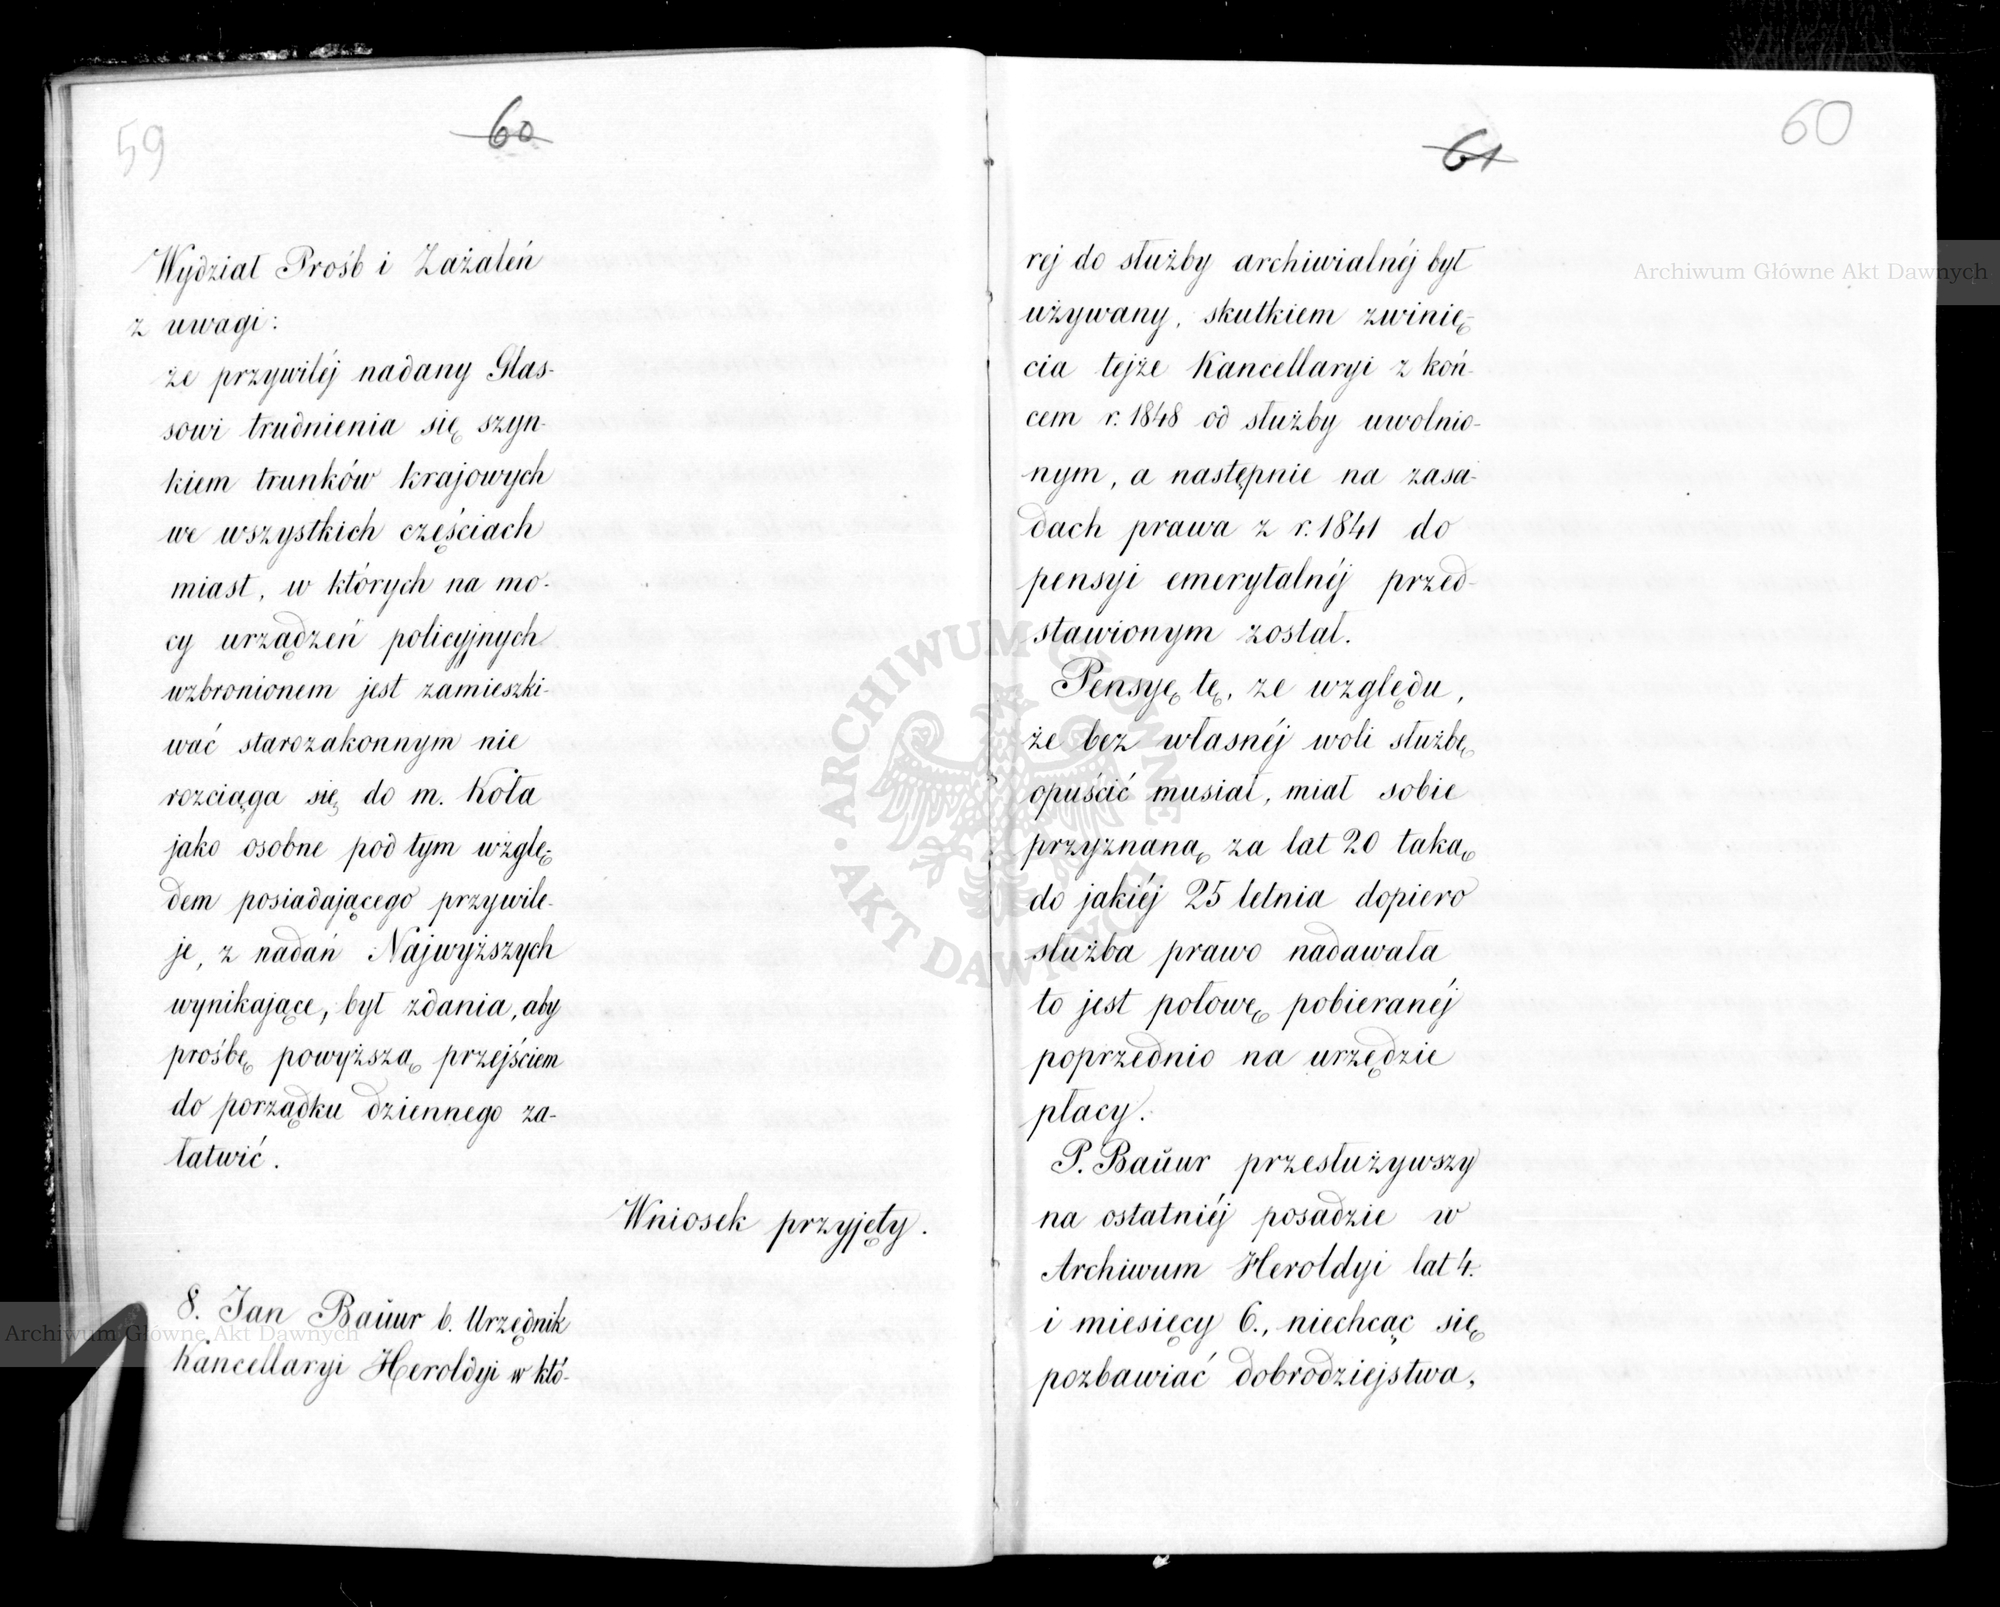 59
60
Wydział Prośb i Zażaleń
z uwagi:
że przywiléj nadany Glas-
sowi trudnienia się szyn-
kiem trunków krajowych
we wszystkich częściach
miast, w których na mo-
cy urządzeń policyjnych
wzbronionem jest zamieszki-
wać starozakonnym nie
rozciąga się do m. Koła
jako osobne pod tym wzglę-
dem posiadającego przywile-
je, z nadań Najwyższych
wynikające, był zdania, aby
prośbę powyższą przejściem
do porządku dziennego za-
łatwić.
Wniosek przyjęty.
8. Jan Baŭur b. Urzędnik
Kancellaryi Heroldyi w któ-
61
60
réj do służby archiwialnéj był
używany, skutkiem zwinię-
cia tejże Kancellaryi z koń-
cem r. 1848 od służby uwolnio-
nym, a następnie na zasa-
dach prawa z r. 1841 do
pensyi emerytalnéj przed-
stawionym został.
Pensyę tę, ze względu,
że bez własnéj woli służbę
opuścić musiał, miał sobie
przyznaną za lat 20 taką
do jakiéj 25 letnia dopiero
służba prawo nadawała
to jest połowę pobieranéj
poprzednio na urzędzie
płacy.
P. Baŭur przesłużywszy
na ostatniéj posadzie w
Archiwum Heroldyi lat 4.
i miesięcy 6., niechcąc się
pozbawiać dobrodziejstwa,
Archiwum Główne Akt Dawnych
Archiwum Główne Akt Dawnych
ARCHIWUM GŁÓWNE
AKT DAWNYCH